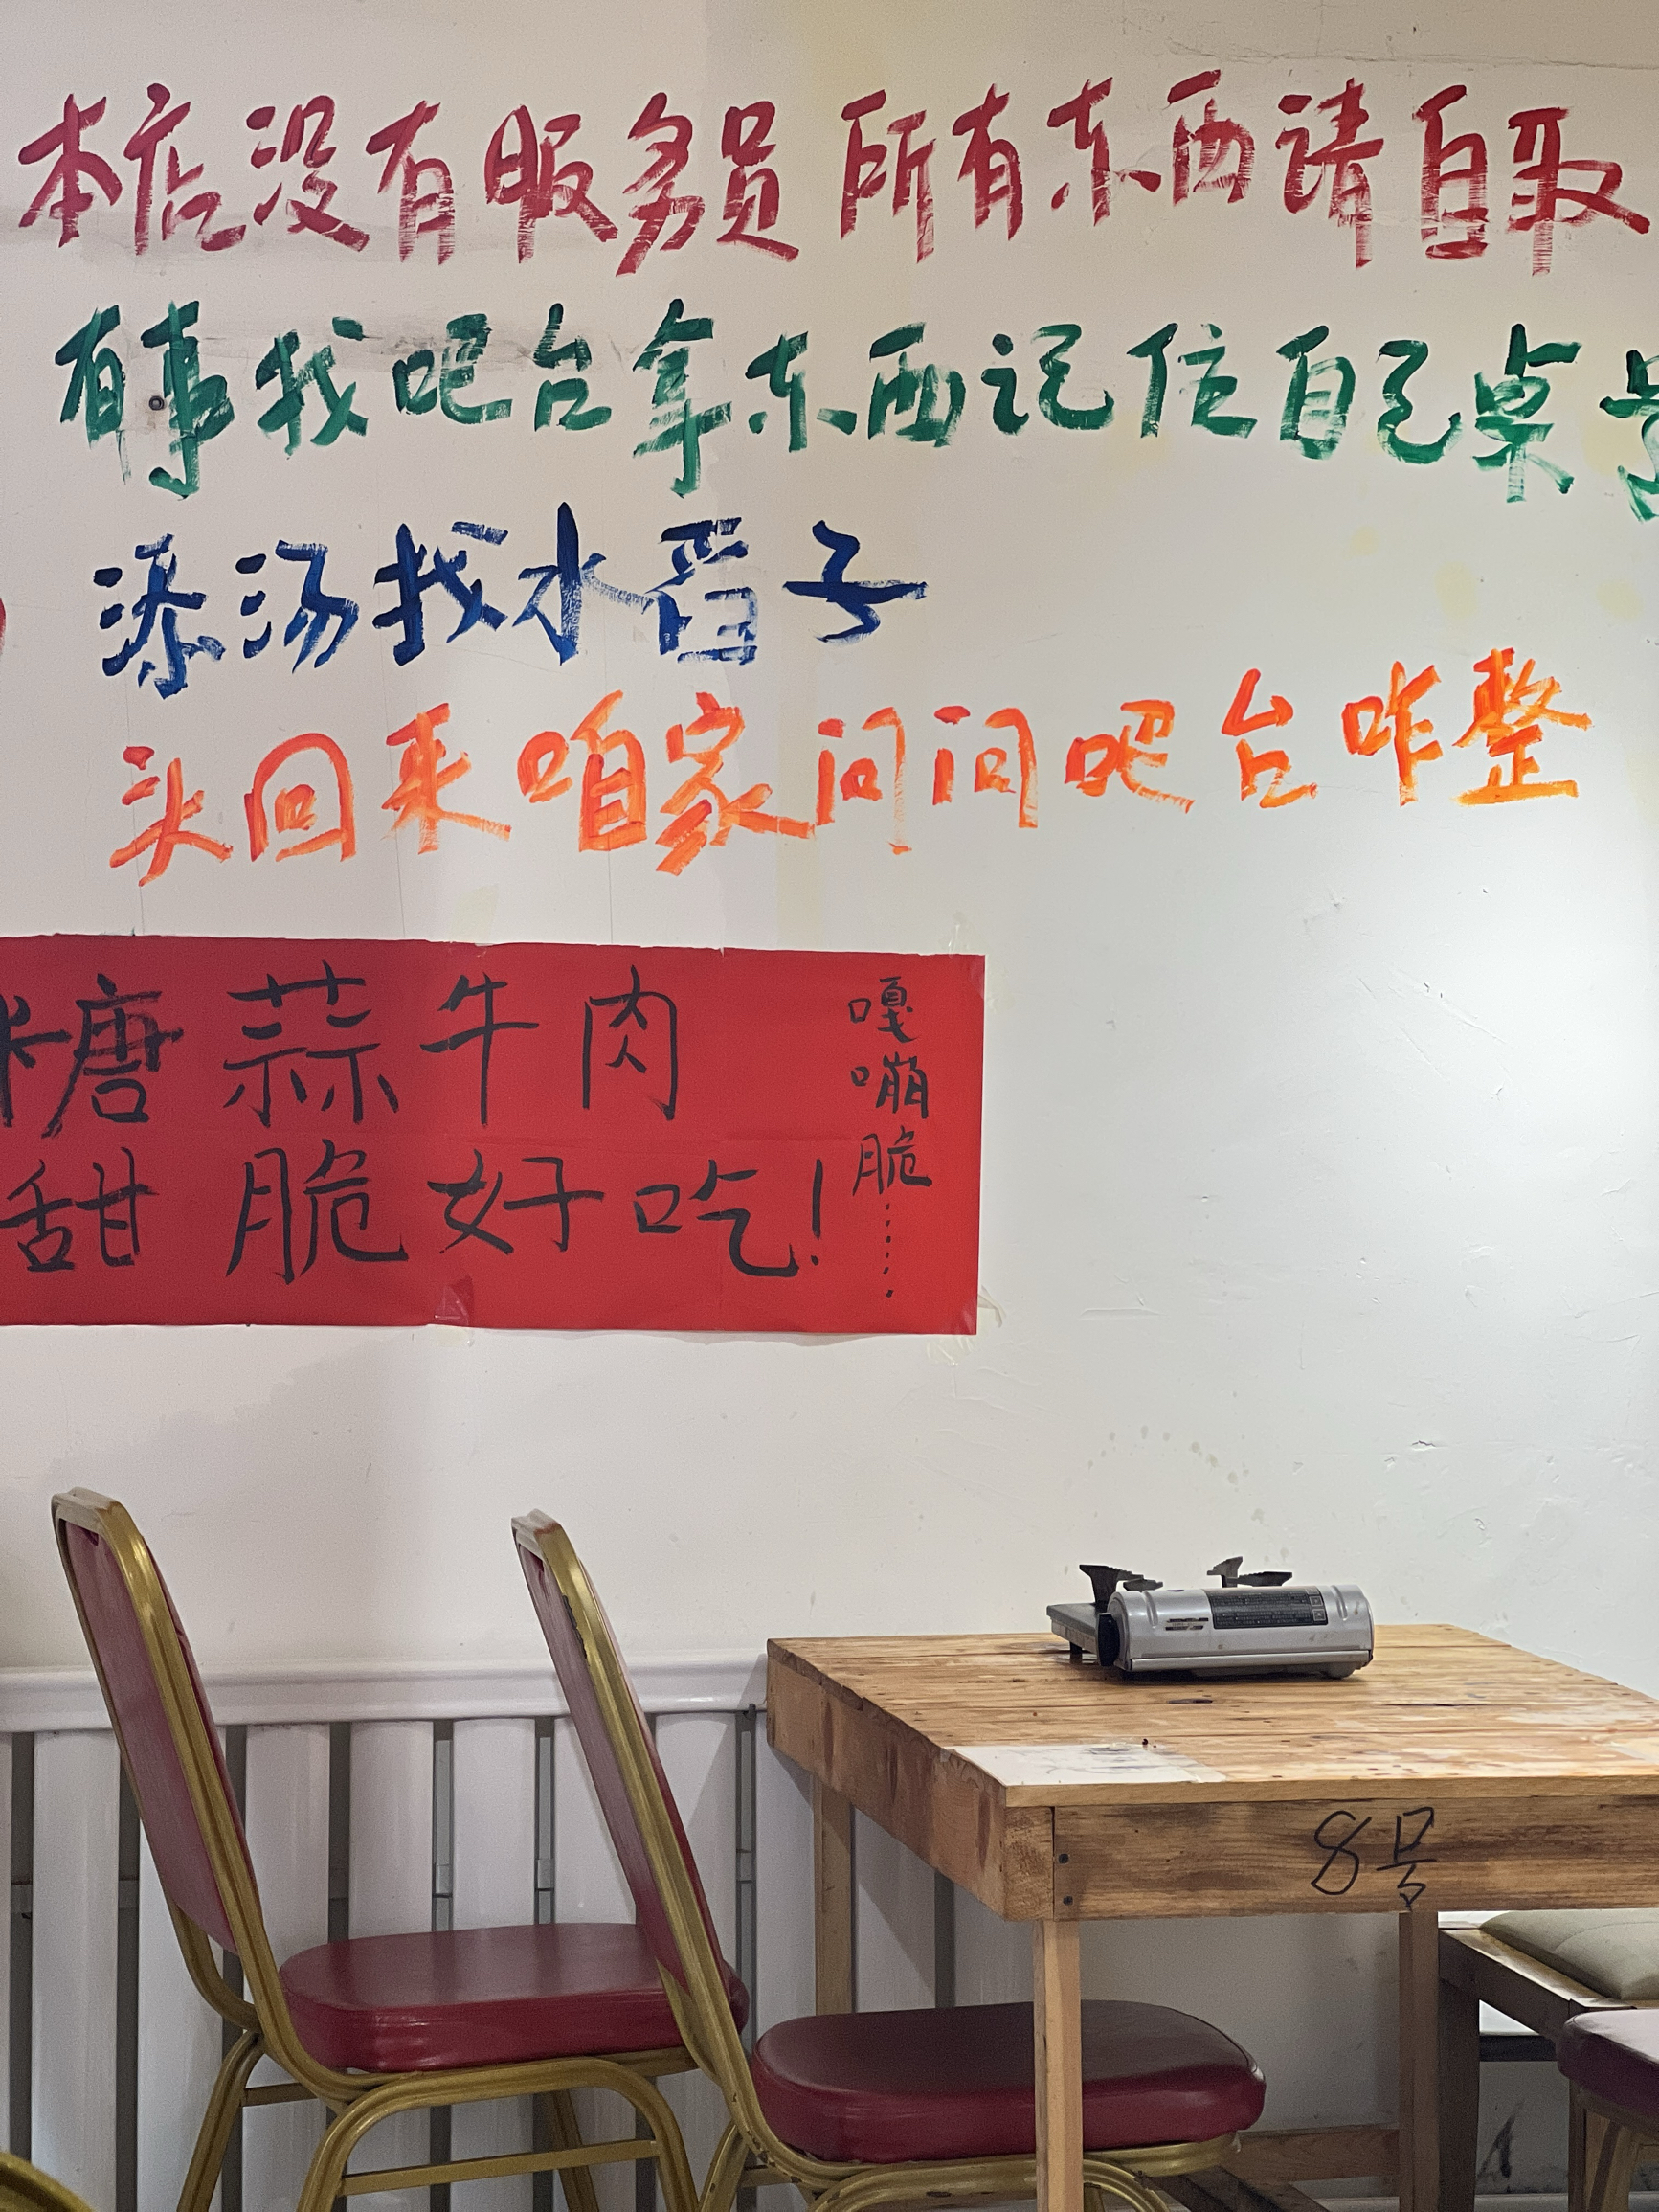 本店没有服务员 所有东西请自取
有事找吧台拿东西记住自己桌号
添汤找水舀子
头回来咱家问问吧台咋整
糖蒜牛肉
甜脆好吃!
嘎嘣脆……
8号